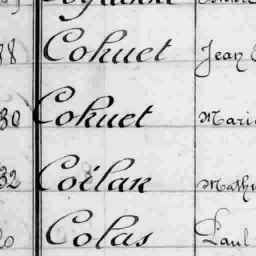 88 Cohuet Jean
30 Cohuet Marie
32 Coëlan Mathu
Colas Paul